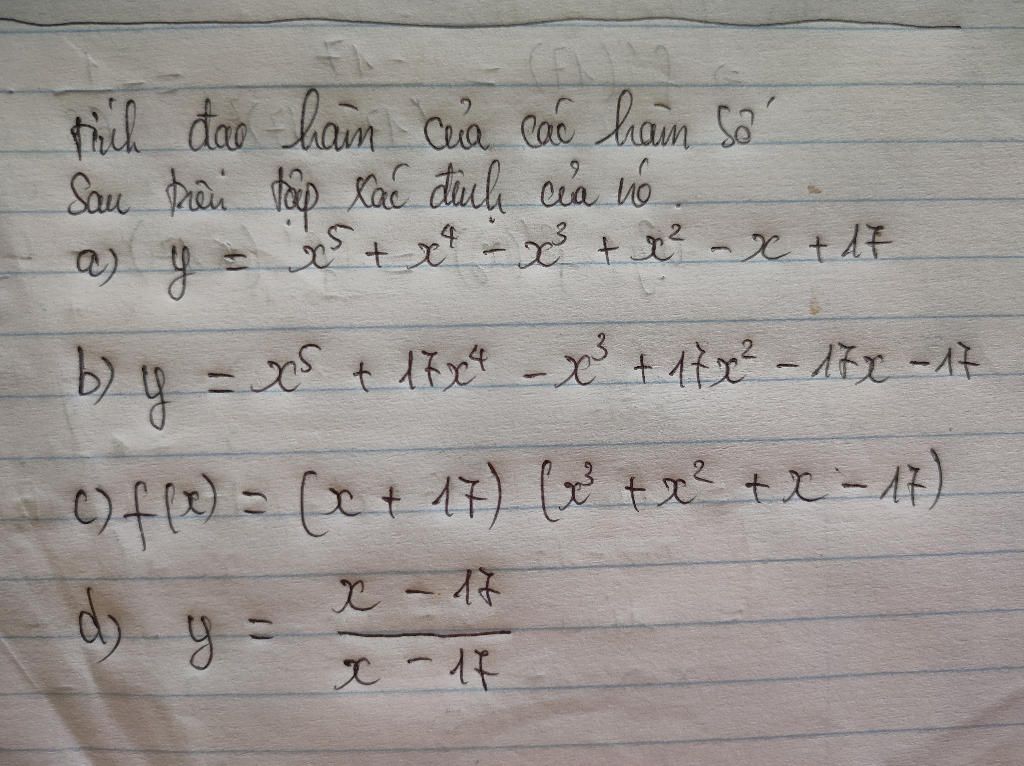 tính đao hàm của các hàm số
Sau trên tập xác định của nó.
a) y = x⁵ + x⁴ - x³ + x² - x + 17
b) y = x⁵ + 17x⁴ - x³ + 17x² - 17x - 17
c) f(x) = (x + 17) (x³ + x² + x - 17)
d) y = \frac{x - 17}{x - 17}